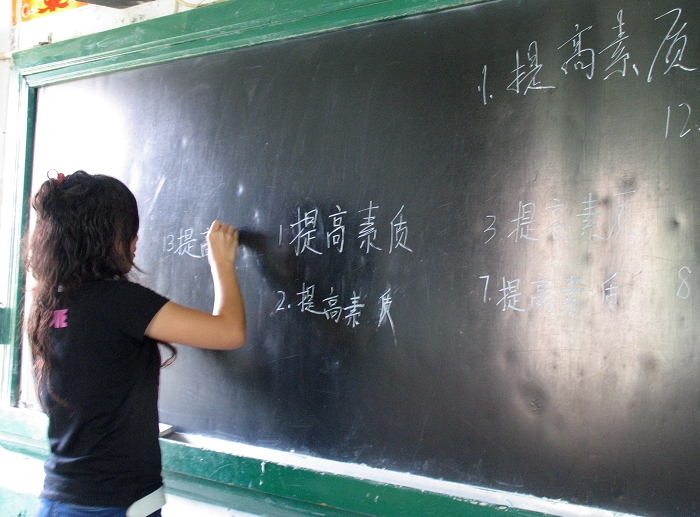 11. 提高素质
12.
13 提高
1 提高素质
3 提高素质
2. 提高素质
7. 提高素质
8